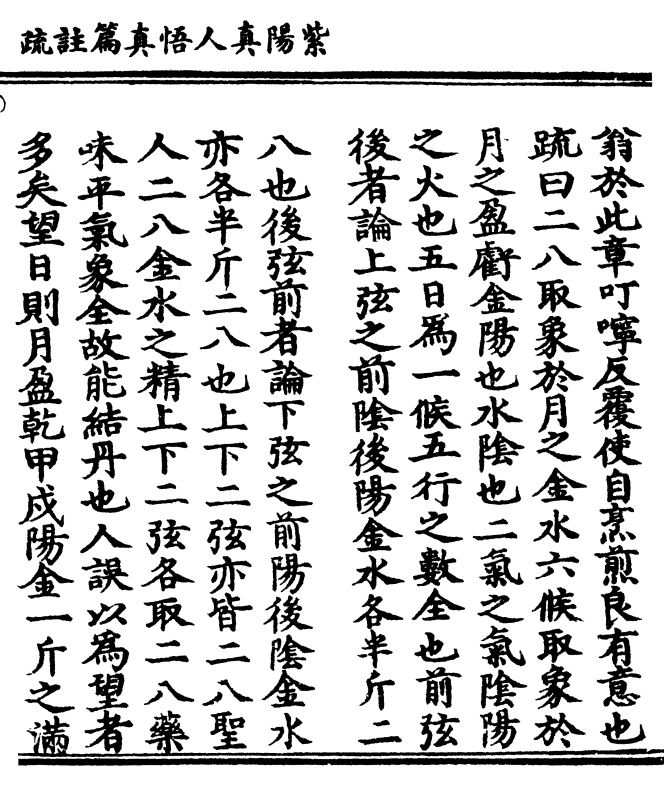 紫陽真人悟真篇註疏
翁於此章叮嚀反覆使自烹煎良有意也
疏曰二八取象於月之金水六候取象於
月之盈虧金陽也水陰也二氣之氣陰陽
之火也五日爲一候五行之數全也前弦
後者論上弦之前陰後陽金水各半斤二
八也後弦前者論下弦之前陽後陰金水
亦各半斤二八也上下二弦亦皆二八聖
人二八金水之精上下二弦各取二八藥
味平氣象全故能結丹也人誤以爲望者
多矣望日則月盈乾甲戌陽金一斤之滿